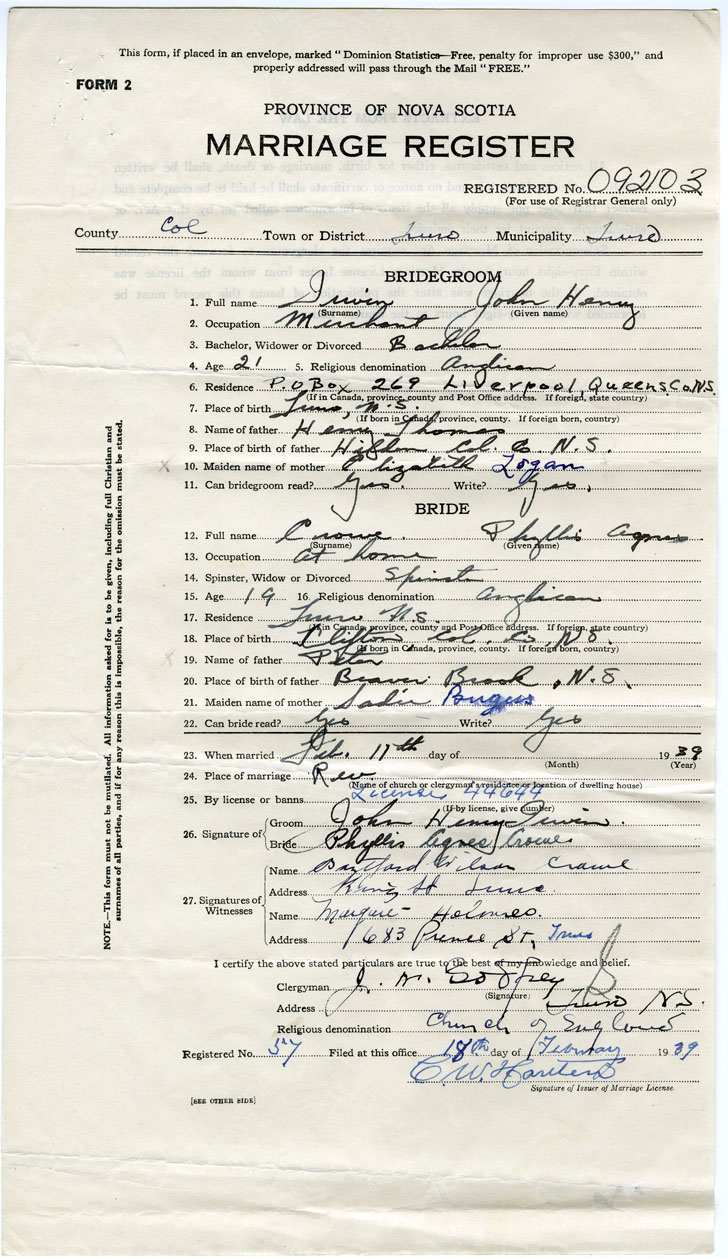 This form, if placed in an envelope, marked "Dominion Statistics—Free, penalty for improper use $300," and
properly addressed will pass through the Mail "FREE."
FORM 2
PROVINCE OF NOVA SCOTIA
MARRIAGE REGISTER
REGISTERED No. 092103
(For use of Registrar General only)
County Col Town or District Truro Municipality Truro
BRIDEGROOM
1. Full name Irwin John Henry
(Surname) (Given name)
2. Occupation Merchant
3. Bachelor, Widower or Divorced Bachelor
4. Age 21 5. Religious denomination Anglican
6. Residence P.O Box 269 Liverpool, Queens Co. N.S.
(If in Canada, province, county and Post Office address. If foreign, state country)
7. Place of birth Truro, N.S.
(If born in Canada, province, county. If foreign born, country)
8. Name of father Henry Thomas
9. Place of birth of father Hilden Col. Co N.S.
x 10. Maiden name of mother Elizabeth Logan
11. Can bridegroom read? Yes. Write? Yes.
BRIDE
12. Full name Crowe. Phyllis Agnes
(Surname) (Given name)
13. Occupation At home
14. Spinster, Widow or Divorced Spinster
15. Age 19 16. Religious denomination Anglican
17. Residence Truro N.S.
(If in Canada, province, county and Post Office address. If foreign, state country)
18. Place of birth Clifton Col. Co, N.S.
(If born in Canada, province, county. If foreign born, country)
x 19. Name of father Peter
20. Place of birth of father Beaver Brook, N.S.
21. Maiden name of mother Sadie
22. Can bride read? Yes Write? Yes
23. When married Feb. 11th day of 1939
(Month) (Year)
24. Place of marriage Rev.
(Name of church or clergyman's residence or location of dwelling house)
25. By license or banns License 44644
(If by license, give number)
26. Signature of
Groom John Henry Irwin.
Bride Phyllis Agnes Crowe
27. Signatures of Witnesses
Name Wilson Crowe
Address King St Truro
Name Holmes.
Address 683 Prince St, Truro
I certify the above stated particulars are true to the best of my knowledge and belief.
Clergyman J. M. Godfrey
(Signature)
Address Truro N.S.
Religious denomination Church of England
Registered No. 57 Filed at this office 18th day of February 1939
C. W.
Signature of Issuer of Marriage License.
[SEE OTHER SIDE]
NOTE.—This form must not be mutilated. All information asked for is to be given, including full Christian and
surnames of all parties, and if for any reason this is impossible, the reason for the omission must be stated.